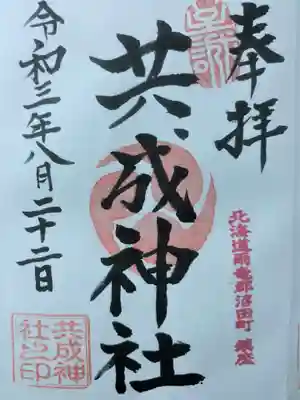 奉拝
北海道雨竜郡沼田町 鎮座
共成神社
令和三年八月二十二日
共成神
社之印